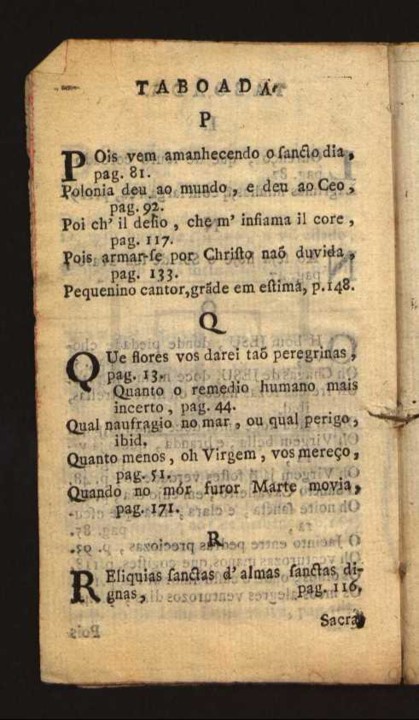 TABOADA.
P
POis vem amanhecendo o ſancto dia,
pag. 81.
Polonia deu ao mundo, e deu ao Ceo,
pag. 92.
Poi ch' il deſio, che m' infiama il core,
pag. 117.
Pois armar-ſe por Chriſto naõ duvida,
pag. 133.
Pequenino cantor, grãde em eſtima, p. 148.
Q
QUe flores vos darei taõ peregrinas,
pag. 13.
Quanto o remedio humano mais
incerto, pag. 44.
Qual naufragio no mar, ou qual perigo,
ibid.
Quanto menos, oh Virgem, vos mereço,
pag. 51.
Quando no mór furor Marte movia,
pag. 171.
R
REliquias ſanctas d' almas ſanctas di-
gnas, pag. 116.
Sacra